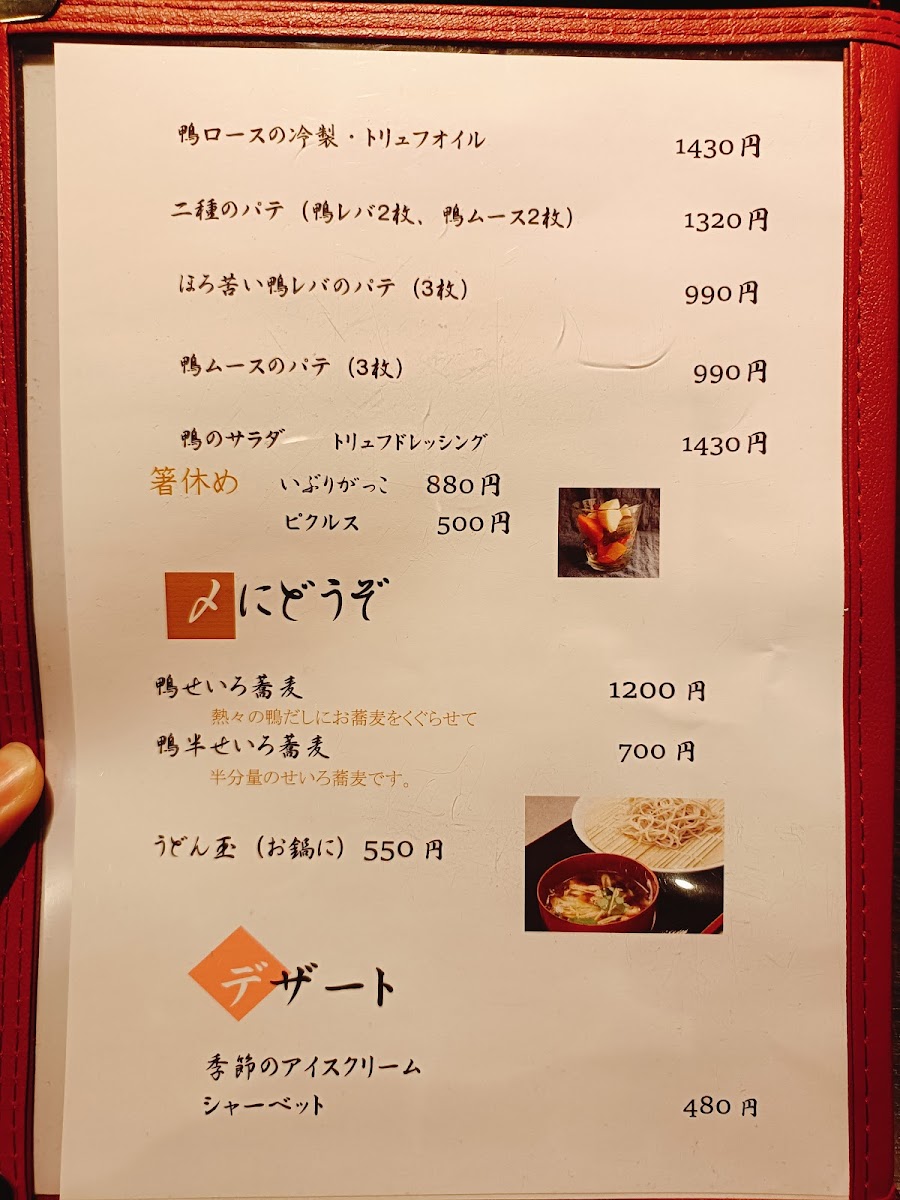 鴨ロースの冷製・トリュフオイル 1430円
二種のパテ (鴨レバ2枚、鴨ムース2枚) 1320円
ほろ苦い鴨レバのパテ (3枚) 990円
鴨ムースのパテ (3枚) 990円
鴨のサラダ トリュフドレッシング 1430円
箸休め いぶりがっこ 880円
ピクルス 500円
〆にどうぞ
鴨せいろ蕎麦 1200 円
熱々の鴨だしにお蕎麦をくぐらせて
鴨半せいろ蕎麦 700 円
半分量のせいろ蕎麦です。
うどん玉 (お鍋に) 550 円
デザート
季節のアイスクリーム
シャーベット 480 円